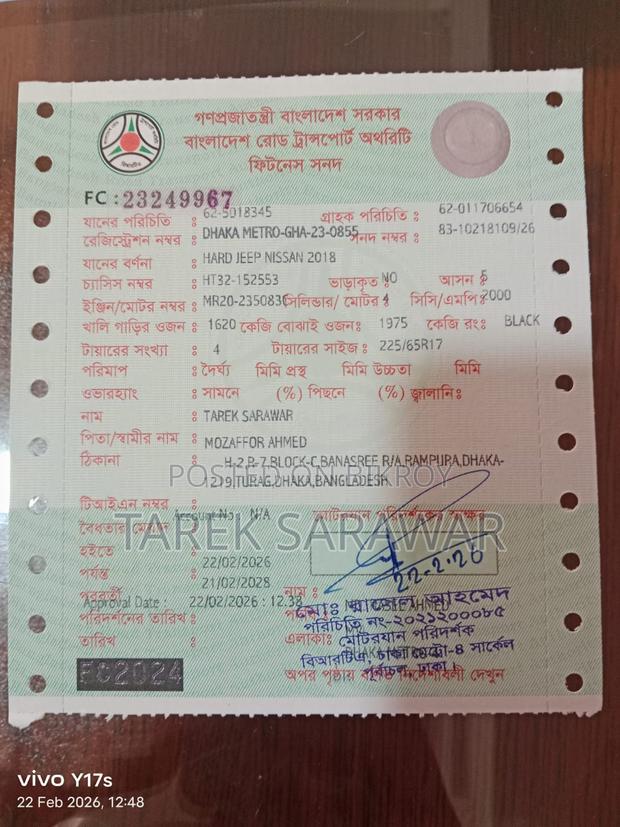 গণপ্রজাতন্ত্রী বাংলাদেশ সরকার
বাংলাদেশ রোড ট্রান্সপোর্ট অথরিটি
ফিটনেস সনদ
FC : 23249967
যানের পরিচিতি : 62-5018345 গ্রাহক পরিচিতি : 62-011706654
রেজিস্ট্রেশন নম্বর : DHAKA METRO-GHA-23-0855 সনদ নম্বর : 83-10218109/26
যানের বর্ণনা : HARD JEEP NISSAN 2018
চ্যাসিস নম্বর : HT32-152553 ভাড়াকৃত : NO আসন : 5
ইঞ্জিন/মোটর নম্বর : MR20-235083 সিলিন্ডার/ মোটর : 4 সিসি/এমপি : 2000
খালি গাড়ির ওজন : 1620 কেজি বোঝাই ওজন : 1975 কেজি রং : BLACK
টায়ারের সংখ্যা : 4 টায়ারের সাইজ : 225/65R17
পরিমাপ : দৈর্ঘ্য মিমি প্রস্থ মিমি উচ্চতা মিমি
ওভারহ্যাং : সামনে (%) পিছনে (%) জ্বালানি :
নাম : TAREK SARAWAR
পিতা/স্বামীর নাম : MOZAFFOR AHMED
ঠিকানা : H-2,R-7,BLOCK-C,BANASREE R/A,RAMPURA,DHAKA-
1219,TURAG,DHAKA,BANGLADESH
POSTED ON BIKROY
টিআইএন নম্বর : Account No : N/A মোটরযান পরিদর্শকের স্বাক্ষর
TAREK SARAWAR
বৈধতার মেয়াদ
হইতে : 22/02/2026
22-2-26
পর্যন্ত : 21/02/2028
পরবর্তী নাম :
Approval Date : 22/02/2026 : 12.38
মোঃ রাসেল আহমেদ
পরিচিতি নং-২০২১২০০০৮৫
পরিদর্শনের তারিখ :
তারিখ : এলাকা:
মোটরযান পরিদর্শক
বিআরটিএ, ঢাকা মেট্রো-৪ সার্কেল
পূর্বাচল, ঢাকা।
FC2024
অপর পৃষ্ঠায় নির্দেশাবলী দেখুন
vivo Y17s
22 Feb 2026, 12:48